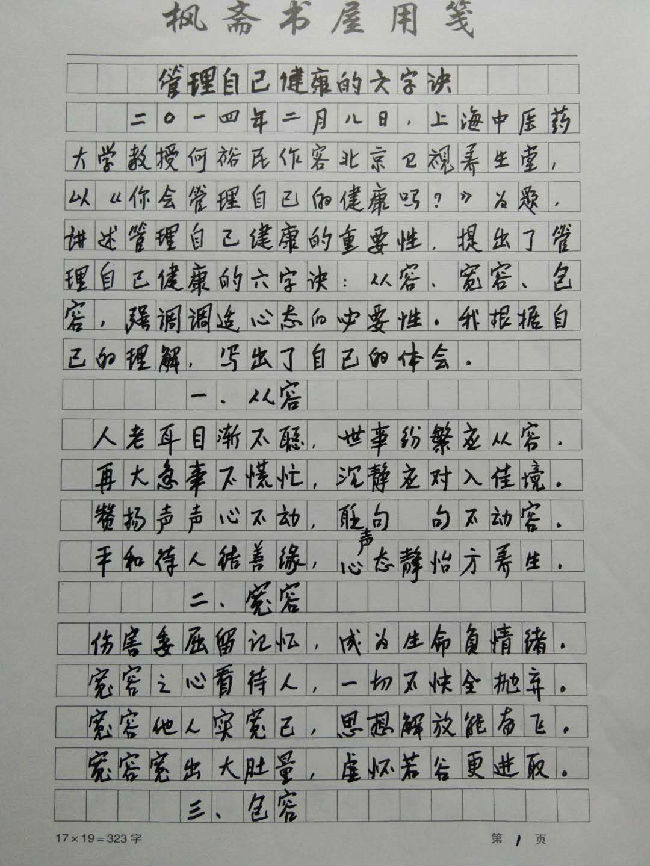 枫斋书屋用笺
管理自己健康的六字诀
二〇一四年二月八日，上海中医药
大学教授何裕民作客北京卫视养生堂，
以《你会管理自己的健康吗？》为题，
讲述管理自己健康的重要性，提出了管
理自己健康的六字诀：从容、宽容、包
容，强调调造心态的必要性。我根据自
己的理解，写出了自己的体会。
一、从容
人老耳目渐不聪，世事纷繁应从容。
再大急事不慌忙，沉静应对入佳境。
赞扬声声心不动，句句不动容。
声
平和待人结善缘，心态静怡方养生。
二、宽容
伤害委屈留记忆，成为生命负情绪。
宽容之心看待人，一切不快全抛弃。
宽容他人实宽己，思想解放能奋飞。
宽容宽出大肚量，虚怀若谷更进取。
三、包容
17×19=323字
第1页